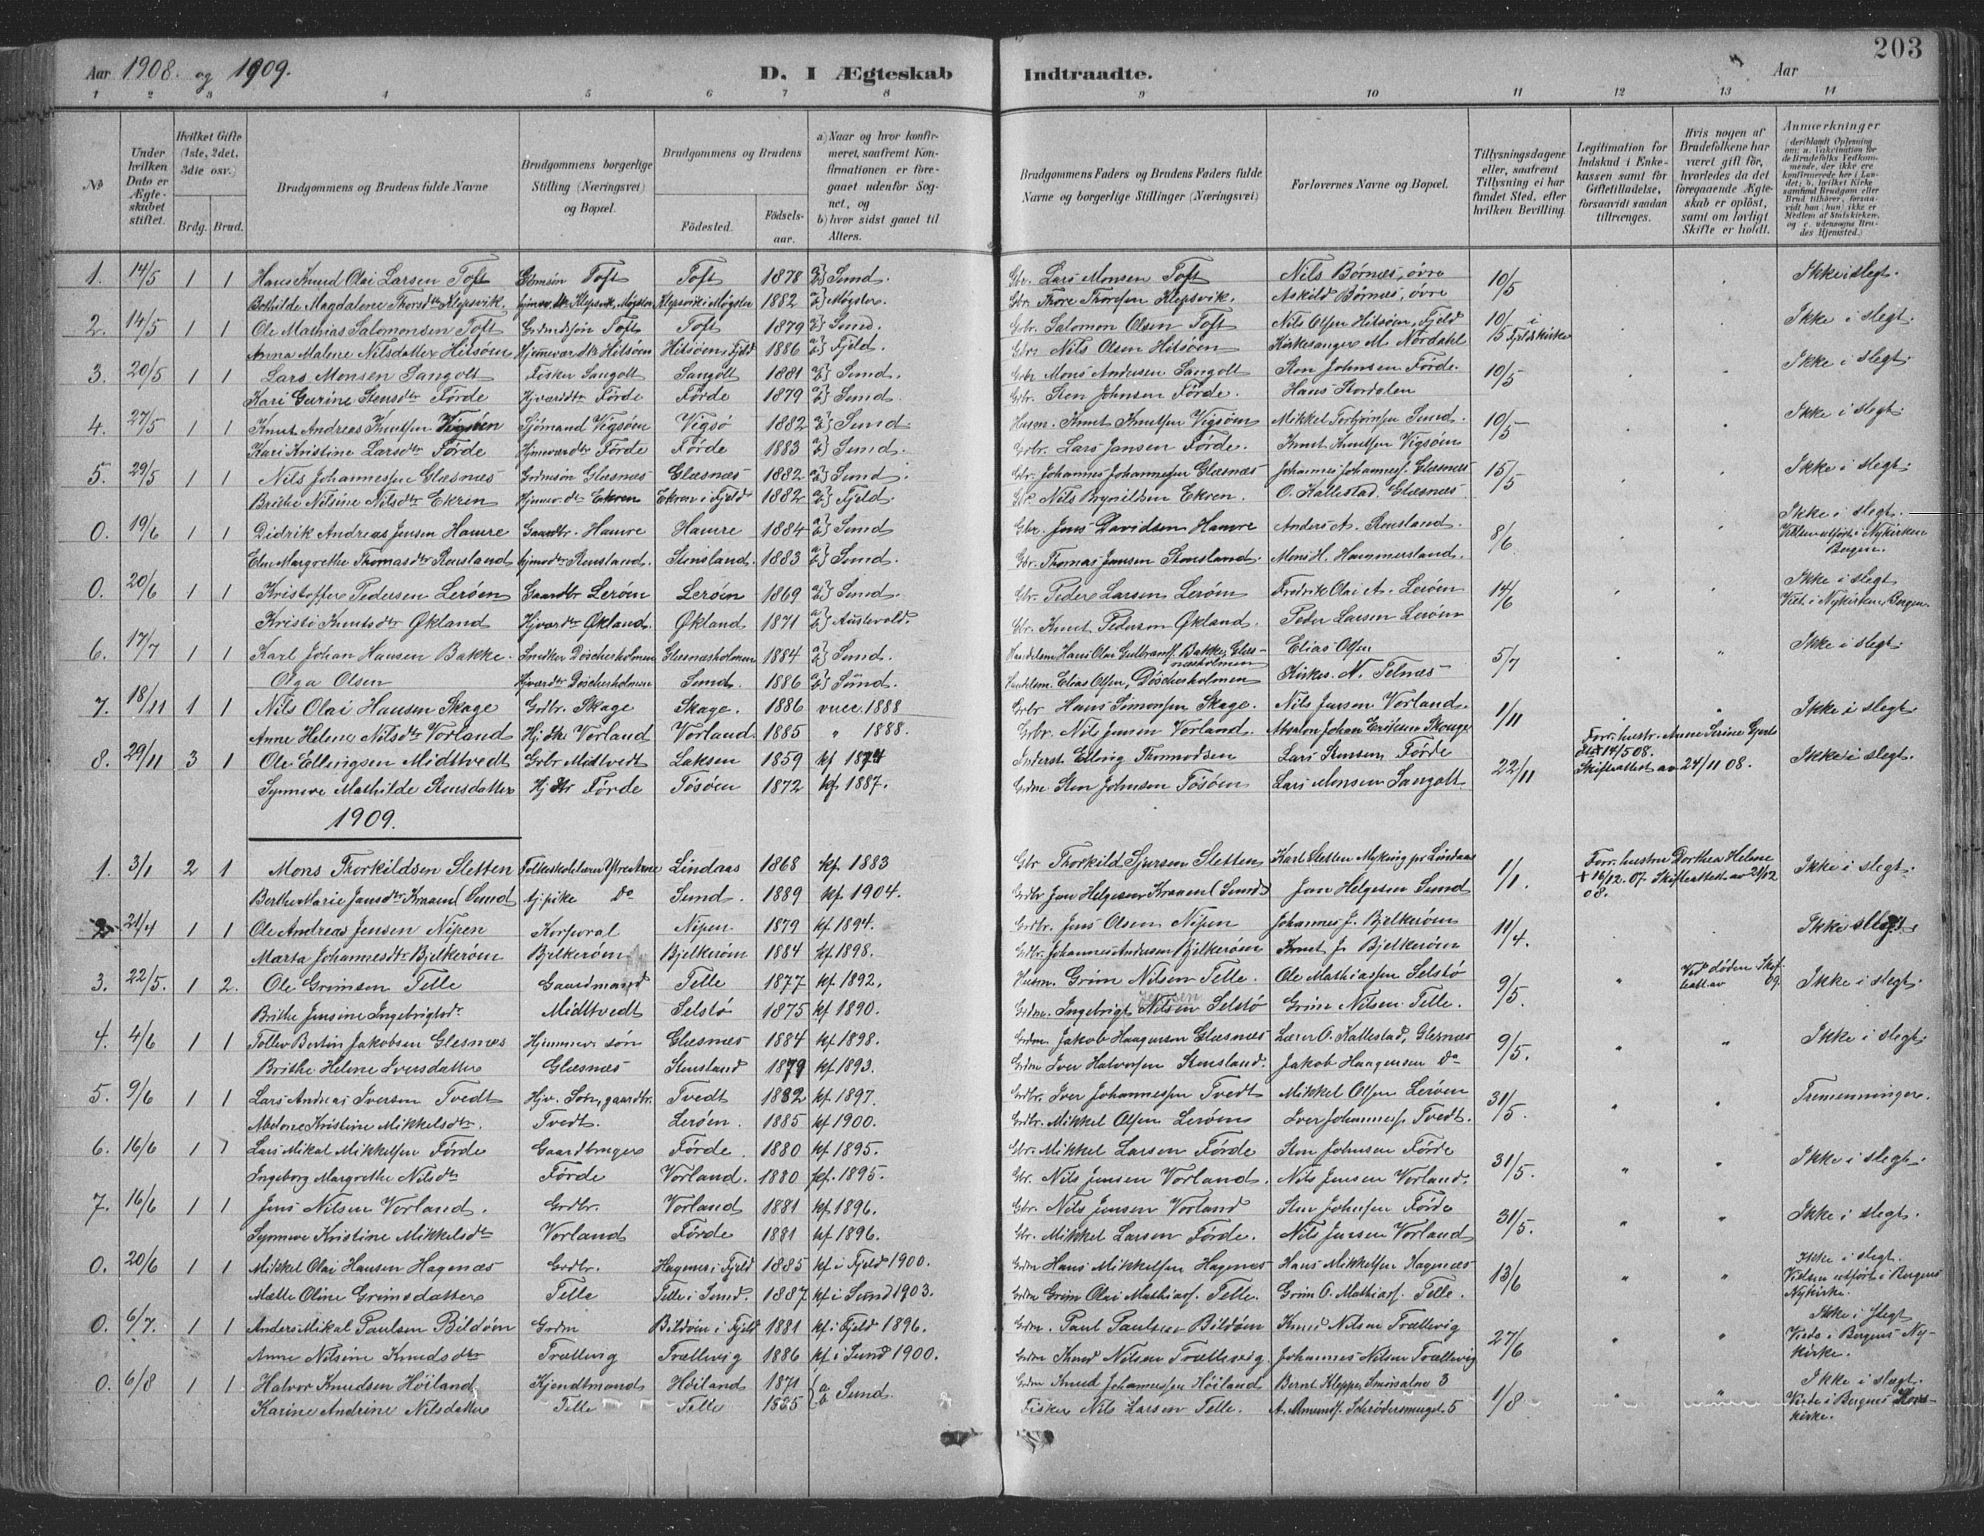 203
Aar 1908. og 1909. D. I Ægteskab Indtraadte. Aar
1 2 3 4 5 6 7 8 9 10 11 12 13 14
No
Under hvilken Dato er Ægteskabet stiftet.
Hvilket Gifte (1ste, 2det, 3die osv.)
Brdg. Brud.
Brudgommens og Brudens fulde Navne
Brudgommens borgerlige Stilling (Næringsvei) og Bopæl.
Brudgommens og Brudens
Fødested.
Fødselsaar.
a) Naar og hvor konfirmeret, saafremt Konfirmationen er foregaaet udenfor Sognet, og
b) hvor sidst gaaet til Alters.
Brudgommens Faders og Brudens Faders fulde Navne og borgerlige Stillinger (Næringsvei)
Forlovernes Navne og Bopæl.
Tillysningsdagene eller, saafremt Tillysning ei har fundet Sted, efter hvilken Bevilling.
Legitimation for Indskud i Enkekassen samt for Giftetilladelse, forsaavidt saadan tiltrænges.
Hvis nogen af Brudefolkene har været gift før, hvorledes da det foregaaende Ægteskab er opløst, samt om lovligt Skifte er holdt.
Anmærkninger
1. 14/5 1 1 Hans Knud Olai Larsen Toft Grdmsøn Toft Toft 1878 a) b) Sund. Gbr. Lars Monsen Toft Nils Børnes, øvre 10/5 Ikke i slegt.
Bothilde Magdalene Thorsdtr Klepsvik. Klepsvik i Møgster 1882 a) b) Møgster. Gbr. Thore Thorsen Klepsvik. Askild Børnes, øvre
2. 14/5 1 1 Ole Mathias Salomonsen Toft Grdmdsøn Toft Toft 1879 a) b) Sund. Gbr. Salomon Olsen Toft Nils Olsen Hitsøen, Fjeld 10/5 i Fjeldskirke Ikke i slegt.
Anna Malene Nilsdatter Hitsøen Hjemmevar. dtr Hitsøen Hitsøen, Fjeld 1886 a) b) Fjeld. Gbr. Nils Olsen Hitsøen Kirkesanger M. Nordahl
3. 20/5 1 1 Lars Monsen Sangolt Fisker Sangolt Sangolt 1881 a) b) Sund. Gbr Mons Andersen Sangolt Sten Johnsen Førde. 10/5 Ikke i slegt.
Kari Gurine Stensdtr Førde Hjvardtr Førde Førde 1879 a) b) Sund. Gbr. Sten Johnsen Førde. Hans Stordalen
4. 27/5 1 1 Knut Andreas Knutsen Vigsøen Sjømand Vigsøen Vigsø 1882 a) b) Sund Husm. Knut Knutsen Vigsøen Mikkel Torbjørnsen Sund. 10/5 Ikke i slegt.
Kari Kristine Larsdtr Førde Hjmevardtr Førde Førde 1883 a) b) Sund. Grbr. Lars Jansen Førde. Knut Knutsen Vigsøen
5. 29/5 1 1 Nils Johannessen Glæsnæs Grdmsøn Glesnæs Glæsnæs 1882 a) b) Sund Gbr. Johannes Johannesen Glæsnæs Johannes Johanness. Glæsnæs 15/5 Ikke i slegt.
Brithe Nilsine Nilsdtr Ekren Hjmev. dtr Ekren Ekren i Fjeld 1882 a) b) Fjeld. Gbr. Nils Brynildsen Ekren. O. Kallestad, Glæsnæs
0. 19/6 1 1 Didrik Andreas Jensen Hamre Gaardbr. Hamre Hamre 1884 a) b) Sund. Gbr. Jens Davidsen Hamre Anders A. Stensland. 8/6 Ikke i slegt. Vielsen udført i Nykirken Bergen.
Elen Margrethe Thomasdtr Stensland Hjmdtr Stensland. Stensland. 1883 a) b) Sund. Gbr. Thomas Jansen Stensland. Mons H. Hammersland.
0. 20/6 1 1 Kristoffer Pedersen Lerøen Gaardbr Lerøen Lerøen 1869 a) b) Sund Gbr. Peder Larsen Lerøen Fredrik Olai A. Lerøen 14/6 Ikke i slegt Viet. i Nykirken, Bergen.
Kristi Knutsdtr Økland Hjvardtr Økland. Økland. 1871 a) b) Austevold. Gbr. Knut Pederson Økland. Peder Larsen Lerøen
6. 17/7 1 1 Karl Johan Hansen Bakke. Snedker Døschersholmen Glesnæsholmen 1884 a) b) Sund. Handelsm Hans Olai Gulbrands. Bakke, Glesnæsholmen Elias Olsen 5/7 Ikke i slegt.
Olga Olsen Hjvardtr Døschesholmen Sund. 1886 a) b) Sund. Handelsm. Elias Olsen, Døschersholmen Kirkes. N. Telnæs
7. 18/11 1 1 Nils Olai Hansen Skage Grdbr. Skage Skage. 1886 vacc. 1888 Grbr Hans Simonsen Skage. Nils Jensen Vorland. 1/11 Ikke i slegt.
Anne Helene Nilsdtr Vorland Hj. dtr Vorland Vorland. 1885 " 1888. Grbr. Nils Jensen Vorland. Absalon Johan Eriksen Skauge
8. 29/11 3 1 Ole Ellingsen Midttvedt Grbr Midtvedt Laksen 1859 kf 1874 Inderst. Elling Thormodsen Lars Stensen Førde 22/11 Forr. hustr. Anne Serine Gjerts dtr † 14/5 08. Skifteattest av 24/11 08. Ikke i slegt.
Synneve Mathilde Stensdatter Hj. dtr Førde Tøsøen 1872 kf 1887. Grdm Sten Johnson Tøsøen Lars Monsen Sangolt.
1909.
1. 3/1 2 1 Mons Thorkildsen Sletten Folkeskolelærer Lindaas 1868 kf. 1883 Gbr Thorkild Sjursen Sletten Karl Sletten Myking pr Lindaas 1/1 Forr. hustru Dorthea Helene † 16/12. 07. Skifteattest av 21/12 08. Ikke i slegt.
Berthe Marie Jansdtr Sund Hjpike Do Sund. 1889 kf. 1904. Grdbr Jan Helgesen (Sund) Jan Helgesen Sund
2 21/4 1 1 Ole Andreas Jensen Nipen Korporal Nipen 1879 kf 1894. Grdbr. Jens Olsen Nipen Johannes J. Bjelkerøen 11/4 Ikke slegt
Marta Johannesdtr Bjelkerøen Bjelkerøen Bjelkerøen 1884 kf. 1898. Grdbr. Johannes Andersen Bjelkerøen Knut J. Bjelkerøen
3. 22/5. 1 2. Ole Grimsen Telle Gaardmand Telle 1877 kf. 1892. Husm. Grim Nilsen Telle. Ole Mathiassen Selstø 9/5. " Ved døden Skifteatt. av 09. Ikke i slegt.
Brithe Jensine Ingebrigtsdtr Midttvedt Selstø 1875 kf 1890. Grdm. Ingebrigt Nilsen Jensen Selstø Grim Nilsen Telle.
4. 4/6 1 1 Tollev Bertin Jakobsen Glesnæs Hjemmev. søn Glesnæs 1884 kf. 1898. Grdm. Jakob Haagensen Glæsnæs Lærer O. Kallestad, Glesnæs 9/5. " " Ikke i slegt.
Brithe Helene Iversdatter Glæsnæs Stensland 1879 kf 1893. Grdm Iver Halvorsen Stensland. Jakob Haagensen Do
5. 9/6 1 1 Lars Andreas Iversen Tvedt Hjv. søn, gaardbr. Tvedt 1882 kf. 1897. Grdbr. Iver Johannessen Tvedt Mikkel Olsen Lerøen 31/5. " " Tremenninger.
Abelone Kristine Mikkelsdtr. Tvedt. Lerøen. 1885 kf 1900. Grdbr. Mikkel Olsen Lerøens Iver Johanness. Tvedt.
6. 16/6 1 1 Lars Mikal Mikkelsen Førde Gaardbruger Førde. 1880 kf. 1895. Gbr. Mikkel Larsen Førde Sten Johnsen Førde 31/5. " " Ikke i slegt.
Ingeborg Margrethe Nilsdtr Førde Vorland. 1880 kf. 1895. Gr. Nils Jensen Vorland. Nils Jensen Vorland.
7. 16/6 1 1 Jens Nilsen Vorland. Grdbr. Vorland 1881 kf 1896. Gbr. Nils Jensen Vorland Sten Johnsen Førde 31/5. " " Ikke i slegt.
Synneve Kristine Mikkelsdtr Vorland Førde 1881 kf 1896. Gbr. Mikkel Larsen Førde. Nils Jensen Vorland
0. 20/6 1 1 Mikkel Olai Hansen Hagenæs Grdbr. Hagenes i Fjeld 1885 kf i Fjeld 1900. Grdm Hans Mikkelsen Hagenæs Hans Mikkelsen Hagenæs 13/6 " " Ikke i slegt. Vielsen utført i Bergens Nykirke.
Mælte Oline Grimsdatter Telle Telle i Sund. 1887 kf i Sund 1903. Grdm Grim Olai Mathiass. Telle. Grim O. Mathiass. Telle.
0. 6/7. 1 1 Anders Mikal Paulsen Bildøen Grdm Bildøen i Fjeld 1881 kf. i Fjeld 1896. Grdm. Paul Paulsen Bildøen Knud Nilsen Trællevig 27/6 " " Ikke i slegt Viede i Bergens Nykirke.
Anne Nilsine Knudsdtr Trællevig Trællevig 1886 kf. i Sund 1900. Grdm Knud Nilsen Trællevig Johannes Nilsen Trællevig
0. 6/8 1 1 Halvor Knudsen Høiland Kjendtmand Høiland 1871 a b Sund. Grdm Knud Johannessen Høiland Bernt Kleppe, 3 1/8 " " Ikke i slægt Viede i Bergens Korskirke.
Karine Andrine Nilsdatter Telle Telle 1885 Fisker Nils Larsen Telle. A. Amunds. Schrødersmuget 5